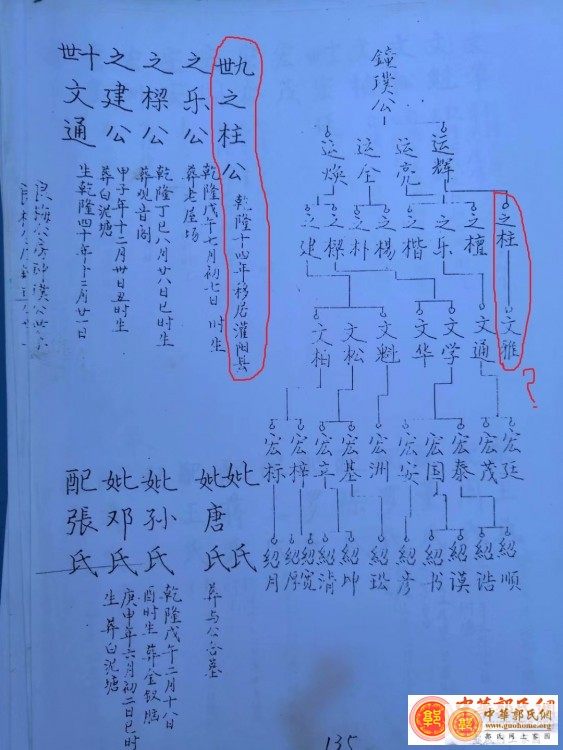 鐘璞公
运辉
运亮
运全
运焕
之柱
之檀
之乐
之楷
之楊
之朴
之樑
之建
文雅
文通
文学
文华
文魁
文松
文柏
?
宏廷
宏茂
宏泰
宏国
宏安
宏洲
宏基
宏章
宏梓
宏标
紹順
紹浩
紹谟
紹书
紹彦
紹坤
紹清
紹宽
紹厚
紹月
九世之柱公
乾隆十四年移居灌阳县
之乐公
乾隆戊午七月初七日 时生
葬老屋场
之樑公
乾隆丁巳八月廿八日巳时生
葬观音阁
之建公
甲子年十二月卅日丑时生
葬白泥塘
十世文通
生乾隆四十年十二月廿一日
妣 氏
妣唐氏
葬与公合墓
妣孙氏
乾隆戊午二月十八日
酉时生 葬金钗脑
妣邓氏
庚申年六月初二日巳时
生 葬白泥塘
配張氏
135
中華郭氏網
www.guohome.org
郭氏网上家园